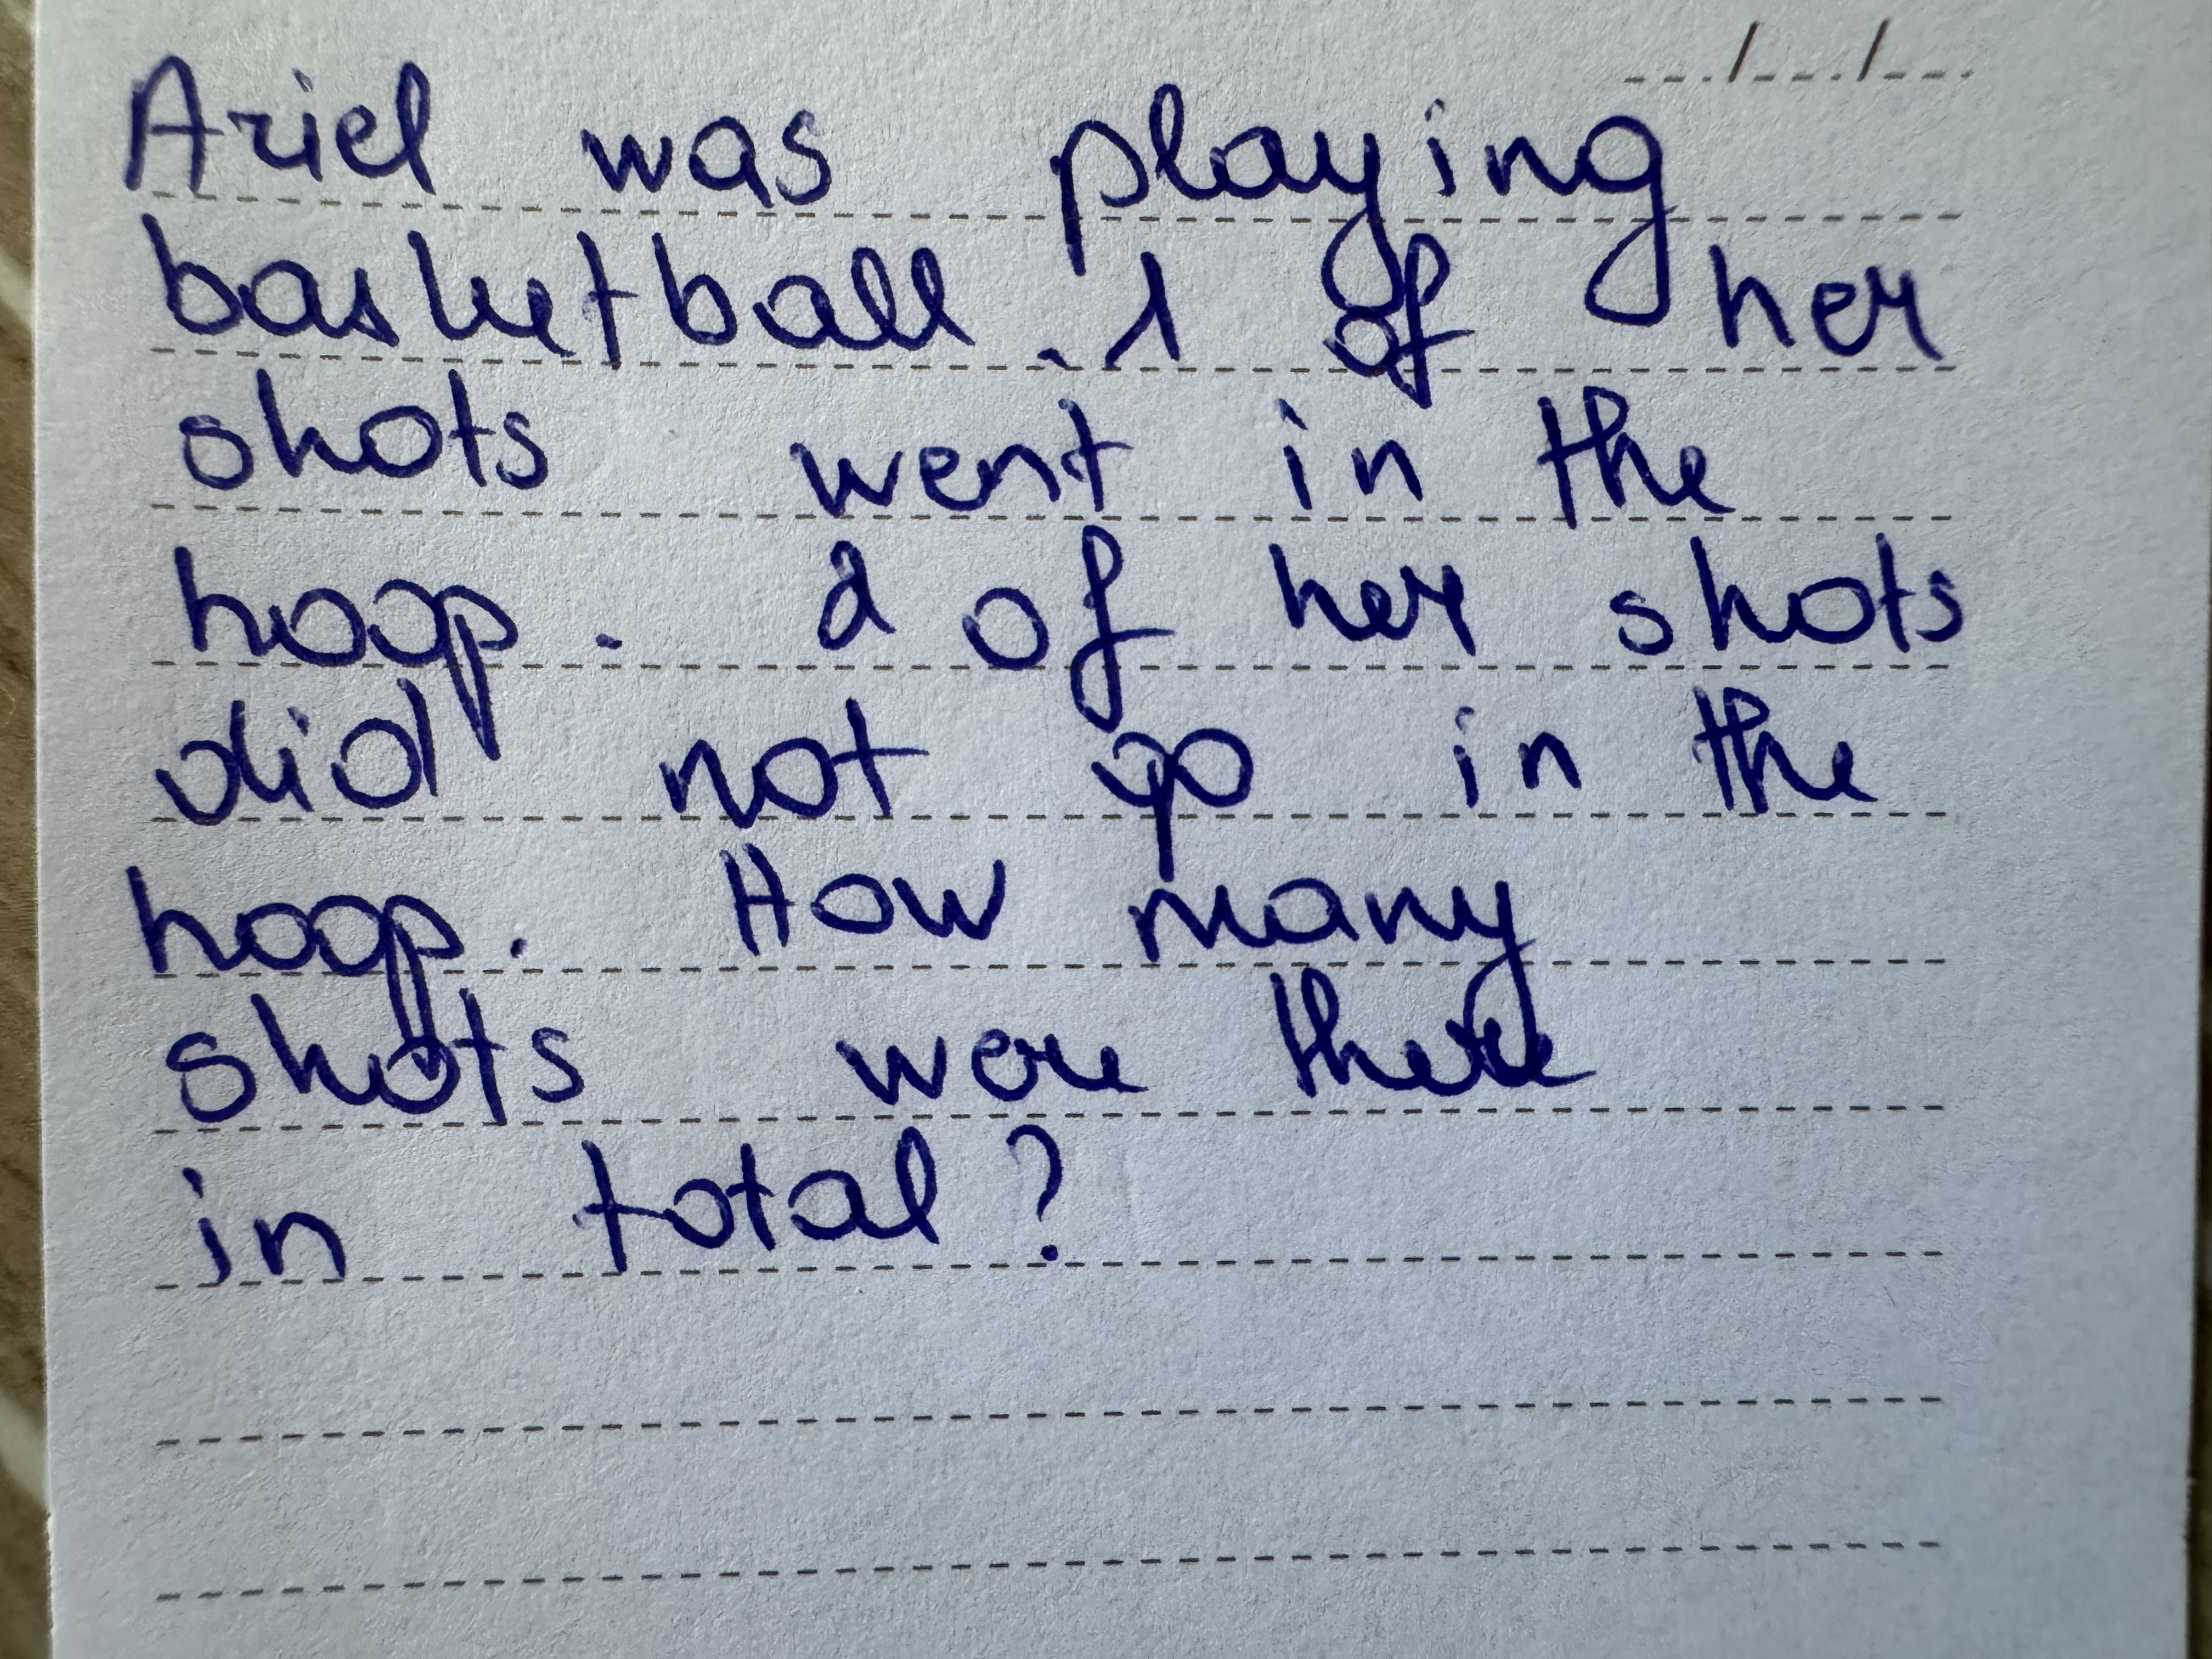 ---/---/---
Ariel was playing
basketball. 1 of her
shots went in the
hoop. 2 of her shots
did not go in the
hoop. How many
shots were there
in total?